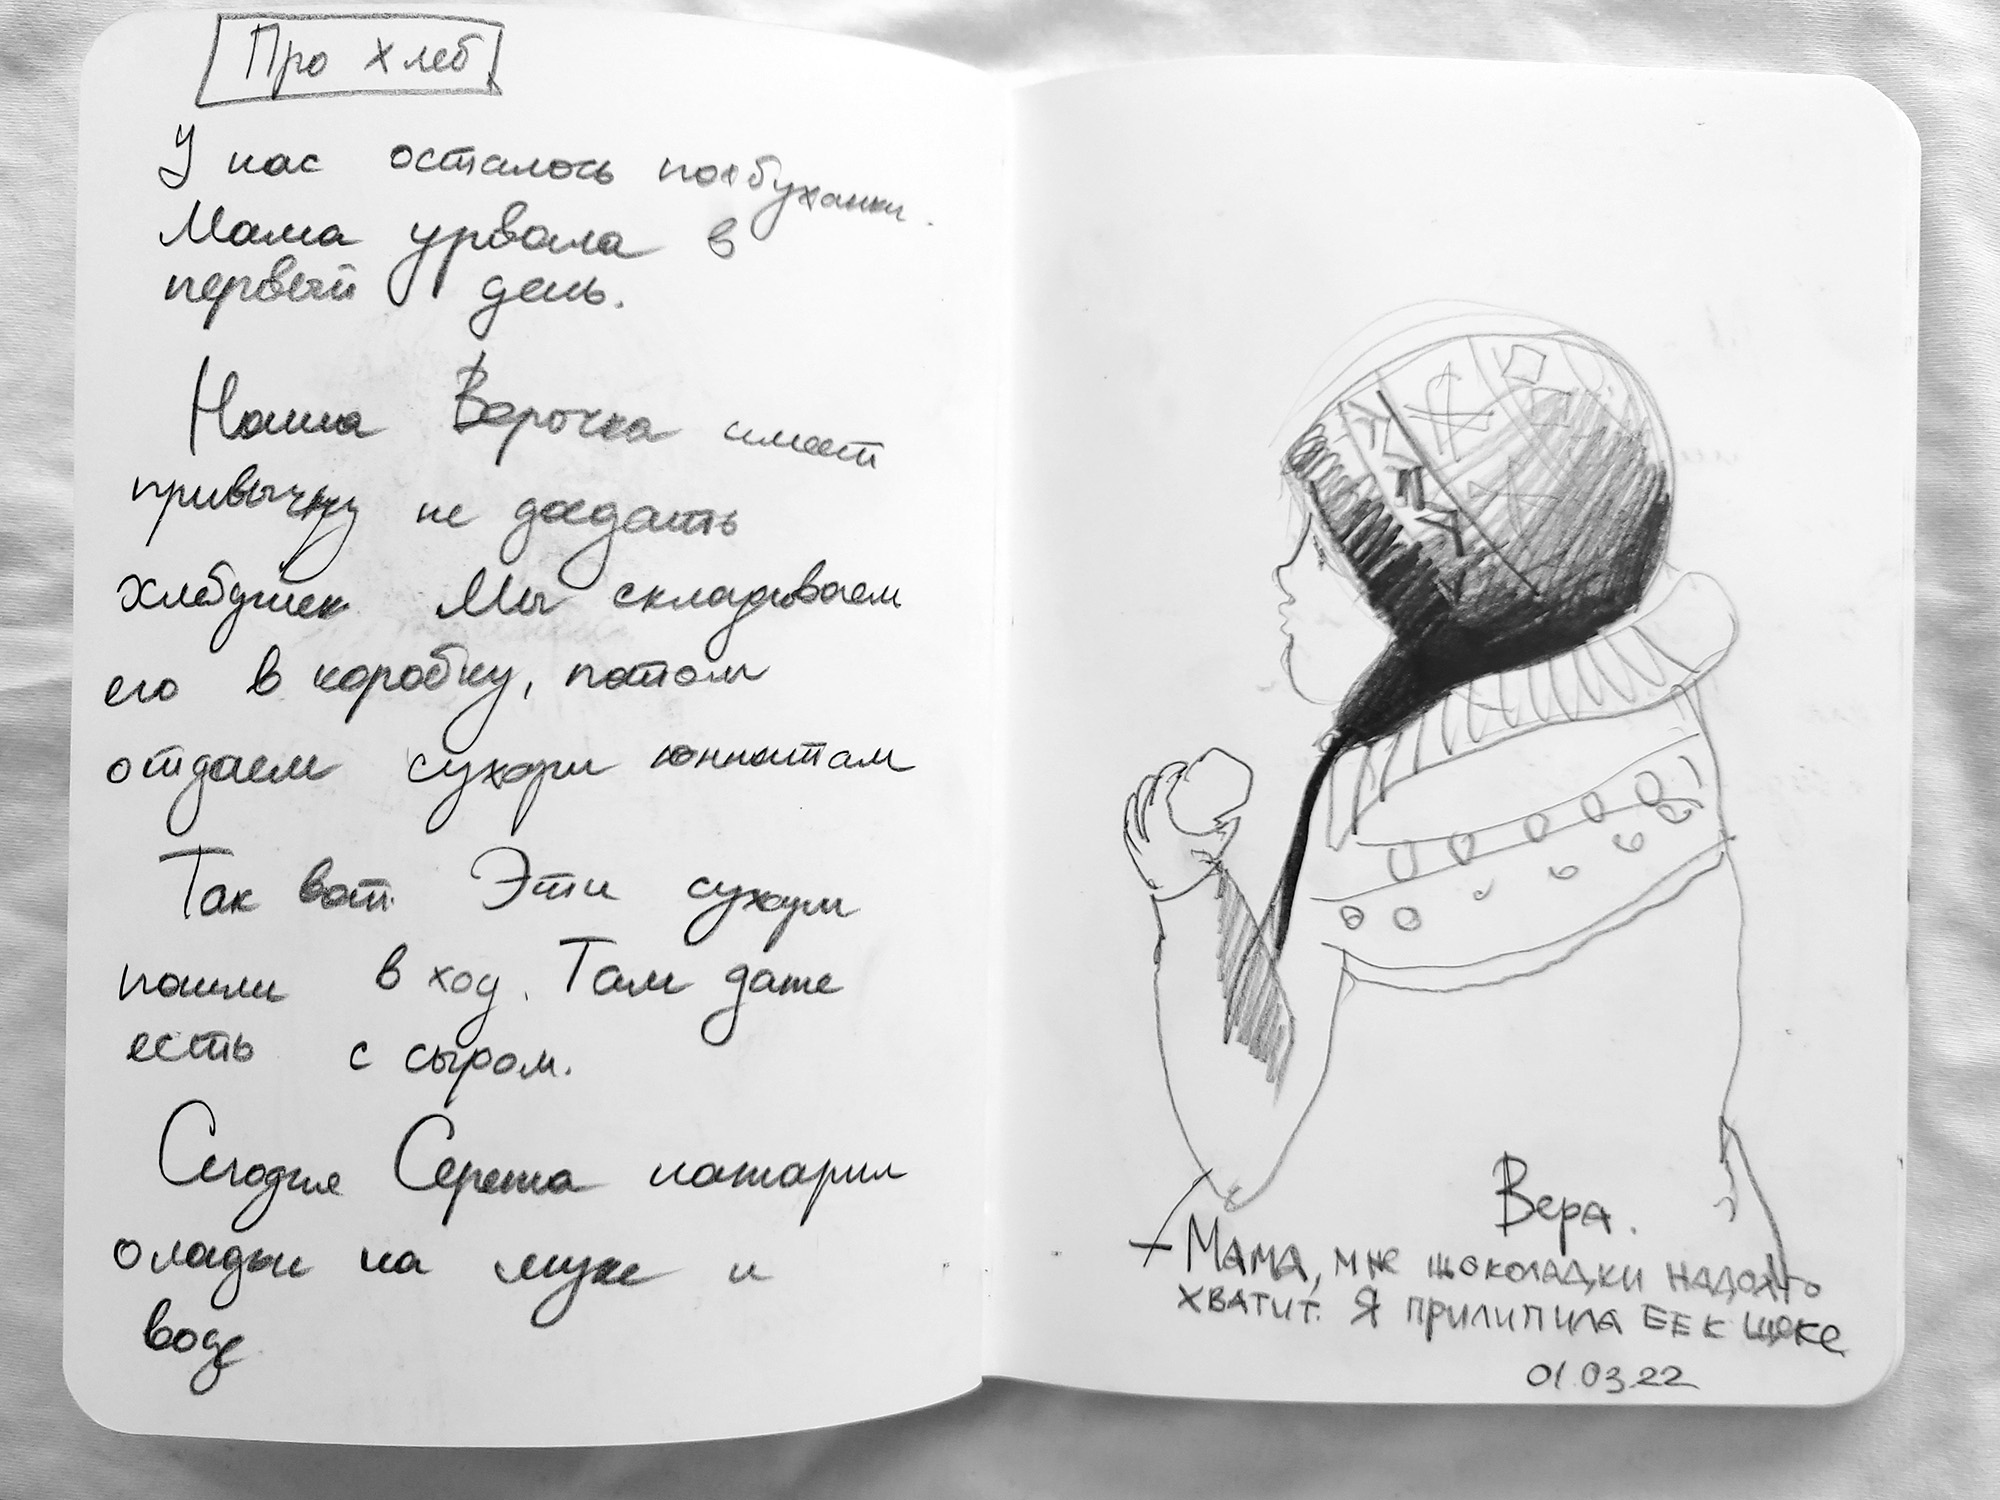 Про хлеб
У нас осталось полбуханки.
Мама урвала в
первый день.
Наша Верочка имеет
привычку не доедать
хлебушек Мы складываем
его в коробку, потом
отдаем сухари
Так вот. Эти сухари
пошли в ход. Там даже
есть с сыром.
Сегодня Сережа нажарил
оладьи на муке и
воде
Вера.
Мама, мне шоколадки надолго
хватит. Я прилипила ее к щеке
01.03.22